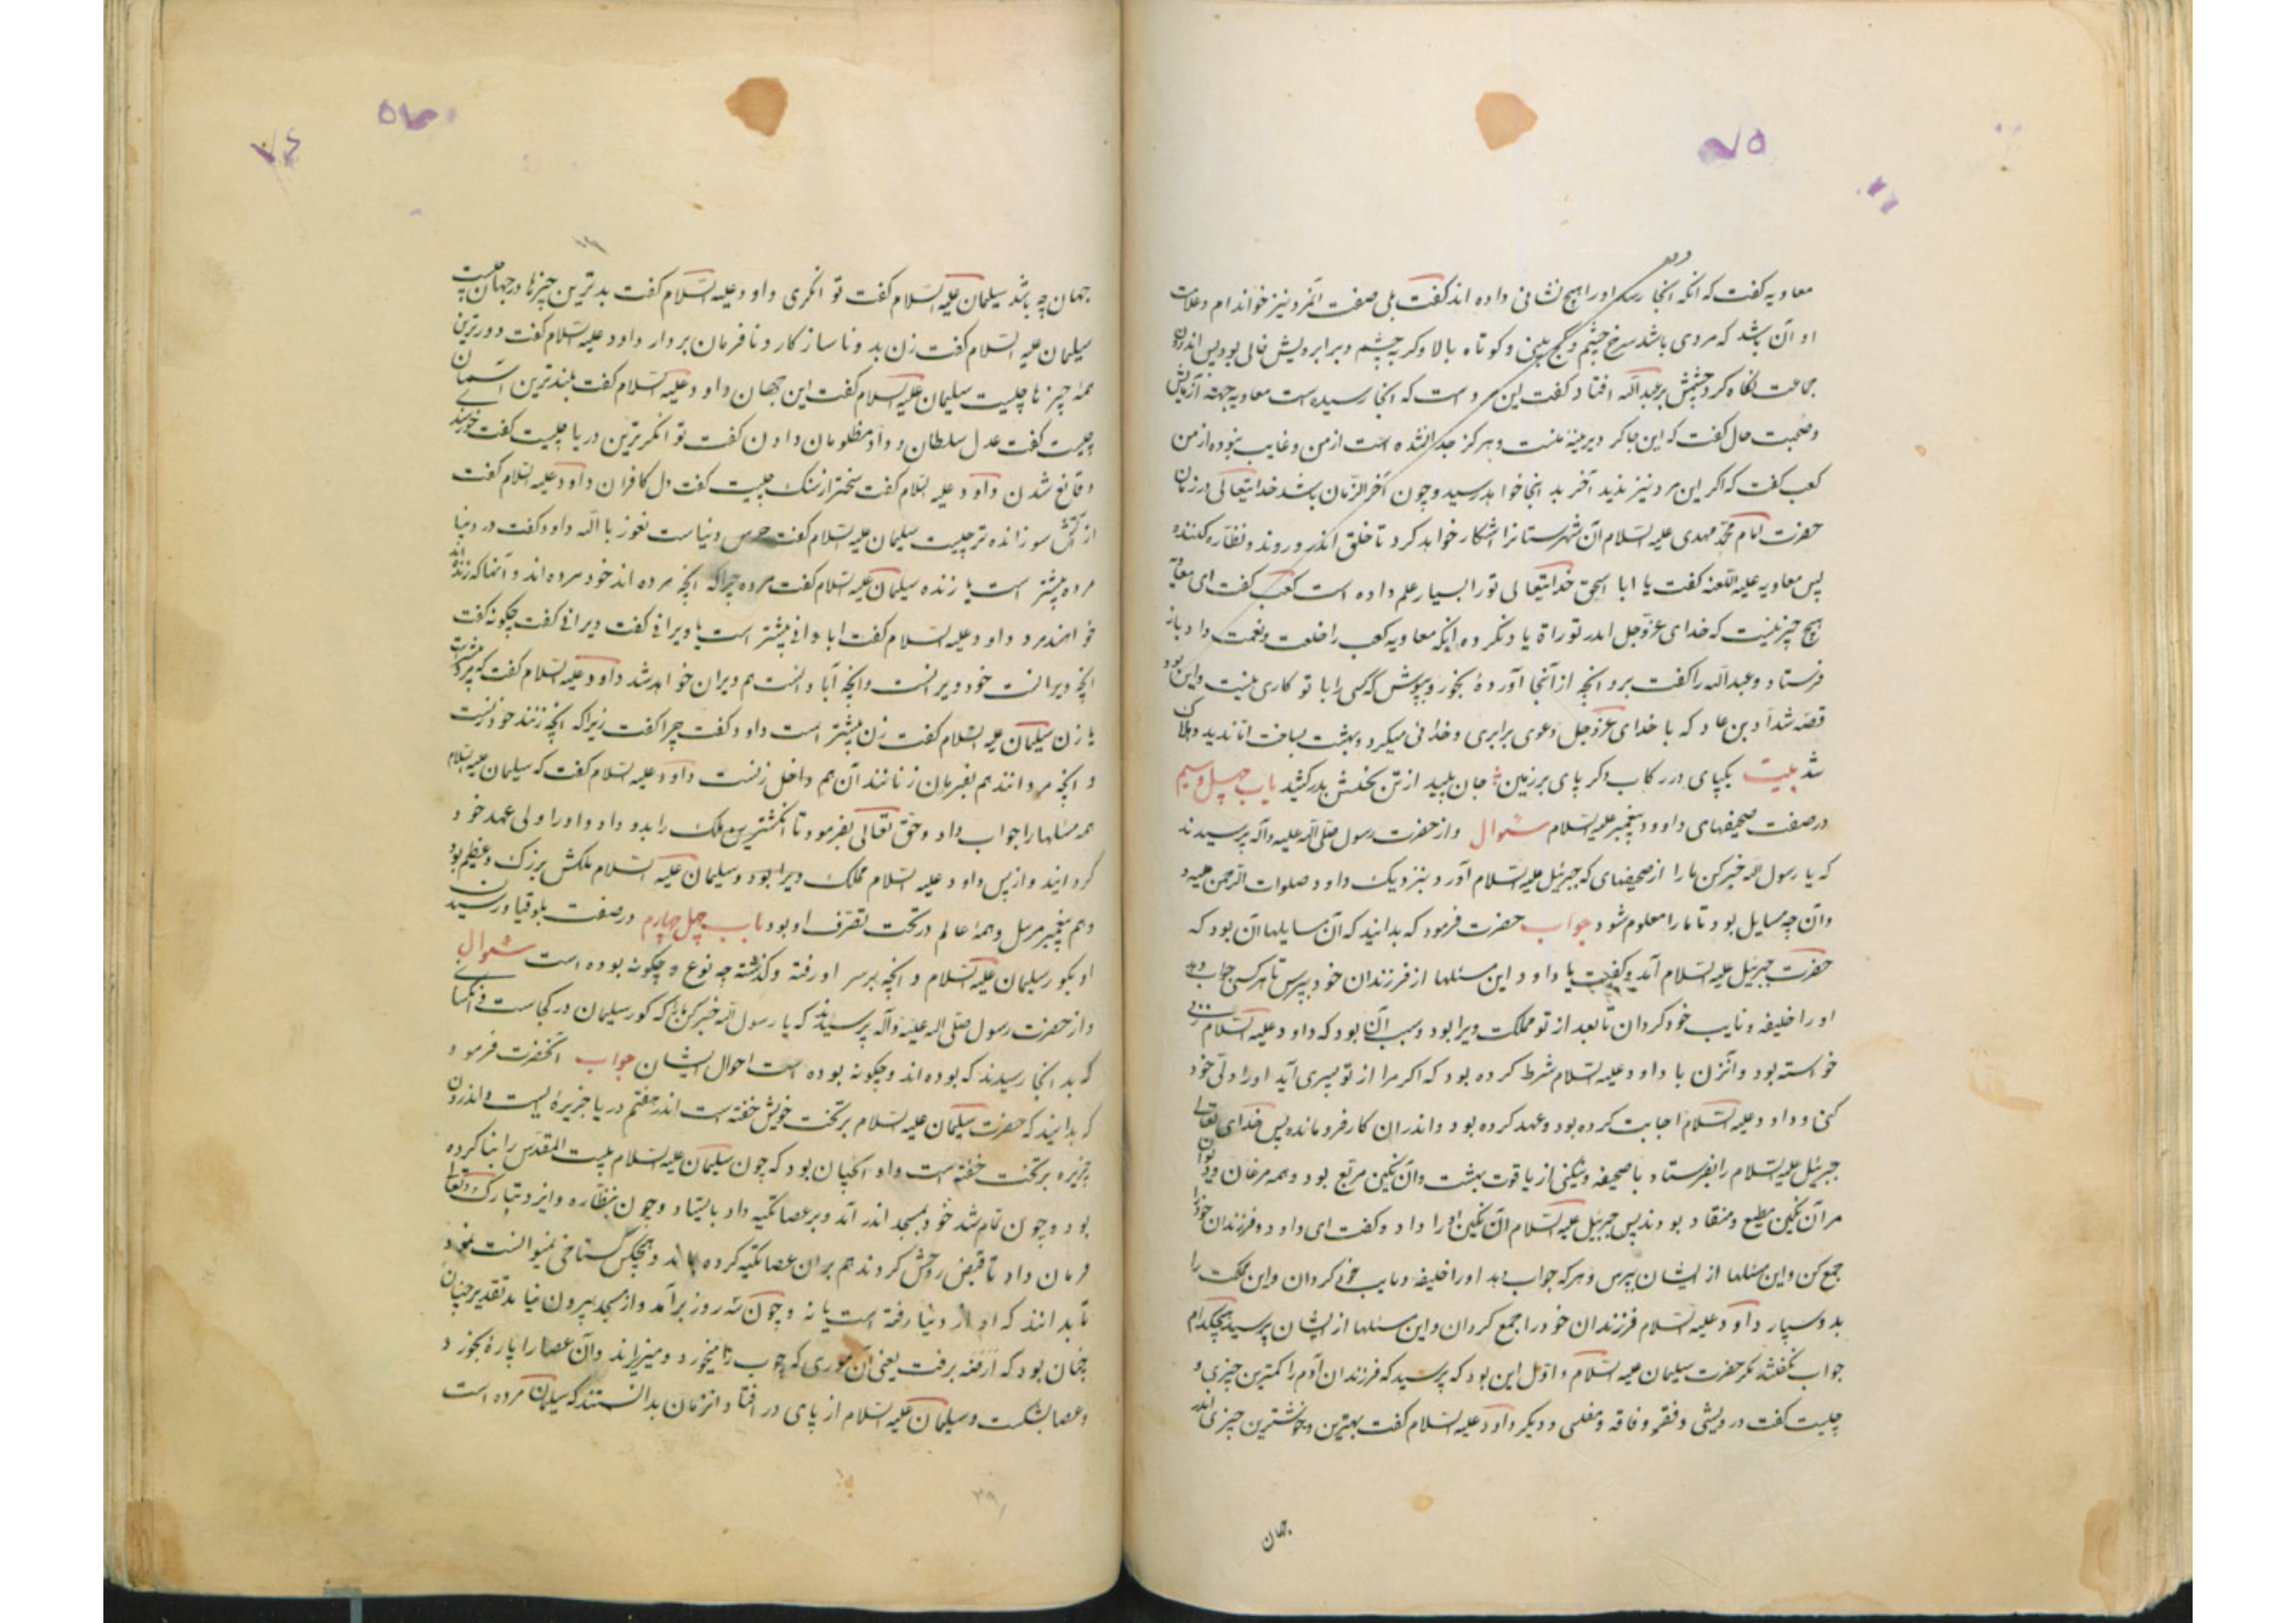 ۷۵
معاویه گفت که آنکه آنجا رسد او را هیچ نشانی داده اند گفت بلی صفت آنمرد نیز خوانده ام و علامت
او آن باشد که مردی باشد سرخ چشم و کج بینی و کوتاه بالا و گربه چشم و برابرویش خالی بود پس اندران
جماعت نگاه کرد چشمش بر عبدالله افتاد گفت این مرد است که آنجا رسیده است معاویه جهته آزمایش
و صحبت حال گفت که این چاکر دیرینهٔ منست و هرگز جدا نشده است از من و غایب نبوده از من
کعب گفت که اگر این مرد نیز ندید آخر بد اینجا خواهد رسید و چون آخرالزمان باشد خدایتعالی در زمان
حضرت امام محمد مهدی علیه السلام آن شهرستانرا آشکار خواهد کرد تا خلق اندر و روند و نظاره کننده
پس معاویه علیه اللعنه گفت یا ابا اسحق خدایتعالی تو را بسیار علم داده است کعب گفت ای معاویه
هیچ چیز نیست که خدای عزوجل اندر توراة یاد نکرده اینکه معاویه کعب را خلعت و نعمت داد و باز
فرستاد و عبدالله را گفت برو آنچه از آنجا آوردهٔ بخور و بپوش که کسی را با تو کاری نیست و این بود
قصه شداد بن عاد که با خدای عزوجل دعوی برابری و خدائی میکرد و بهشت بساخت اما ندید و هلاک
شد بیت یکپای در رکاب دگر پای بر زمین جان پلید از تن نحسش بدر کشید باب چهل و سیم
در صفت صحیفهای داوود پیغمبر علیه السلام سئوال و از حضرت رسول صلی الله علیه وآله پرسیدند
که یا رسول الله خبر کن ما را از صحیفهای که جبرئیل علیه السلام آورد بنزدیک داود صلوات الرحمن علیه و
و آن چه مسایل بود تا ما را معلوم شود جواب حضرت فرمود که بدانید که آن مسایلها آن بود که
حضرت جبرئیل علیه السلام آمد و گفت یا داود این مسئلها از فرزندان خود بپرس تا هر کس جواب دهد
او را خلیفه و نایب خود گردان تا بعد از تو مملکت ویرا بود و سبب آن بود که داود علیه السلام زنی
خواسته بود و آنزن با داود علیه السلام شرط کرده بود که اگر مرا از تو پسری آید او را ولی خود
کنی و داود علیه السلام اجابت کرده بود و عهد کرده بود و اندران کار فرو مانده پس خدای تعالی
جبرئیل علیه السلام را بفرستاد با صحیفه و نگینی از یاقوت بهشت و آن نگین مربع بود و همه مرغان و دیوان
مر آن نگین مطیع و منقاد بودند پس جبرئیل علیه السلام آن نگین او را داد و گفت ای داود و فرزندان خود را
جمع کن و این مسئلها از ایشان بپرس و هر که جواب دهد او را خلیفه و نایب خود گردان و این مملکت را
بدو سپار داود علیه السلام فرزندان خود را جمع گردان و این مسئلها از ایشان پرسید هیچکدام
جواب نگفتند مگر حضرت سلیمان علیه السلام و اول این بود که پرسید که فرزندان آدم را کمترین چیزی و
چیست گفت درویشی و فقر و فاقه و مفلسی و دیگر داود علیه السلام گفت بهترین و خوشترین چیزی اندر
جهان
جهان چه باشد سلیمان علیه السلام گفت توانگری داود علیه السلام گفت بدترین چیزها در جهان چیست
سلیمان علیه السلام گفت زن بد و ناسازکار و نافرمان بردار داود علیه السلام گفت دورترین
همه چیزها چیست سلیمان علیه السلام گفت این جهان داود علیه السلام گفت بلندترین آسمان
چیست گفت عدل سلطان و داد مظلومان دادن گفت توانگرترین دریا چیست گفت خورسند
و قانع شدن داود علیه السلام گفت سختر از سنگ چیست گفت دل کافران داود علیه السلام گفت
از آتش سوزانده تر چیست سلیمان علیه السلام گفت حرص دنیاست نعوذ با الله داود گفت در دنیا
مرده بیشتر است یا زنده سلیمان علیه السلام گفت مرده چراکه آنچه مرده اند خود مرده اند و آنها که زنده اند
خواهند مرد داود علیه السلام گفت ابادانی بیشتر است یا ویرانی گفت ویرانی گفت چگونه گفت
آنچه ویرانست خود ویرانست و آنچه آبادانست هم ویران خواهد شد داود علیه السلام گفت که مرد بیشتر است
یا زن سلیمان علیه السلام گفت زن بیشتر است داود گفت چرا گفت زیرا که آنچه زنند خود زنست
و آنچه مردانند هم بفرمان زنانند آن هم داخل زنست داود علیه السلام گفت که سلیمان علیه السلام
همه مسئلها را جواب داد و حق تعالی بفرمود تا انگشترین ملک را بدو داد و او را ولی عهد خود
گردانید و از پس داود علیه السلام مملکت ویرا بود و سلیمان علیه السلام ملکش بزرگ و عظیم بود
و هم پیغمبر مرسل و همهٔ عالم در تحت تصرف او بود باب چهل چهارم در صفت بلوقیا و رسیدن
او بکور سلیمان علیه السلام و آنچه بر سر او رفته و گذشته چه نوع و چگونه بوده است سئوال
و از حضرت رسول صلی الله علیه وآله پرسیدند که یا رسول الله خبر کن ما را که کور سلیمان در کجاست و آنکسانی
که بد آنجا رسیدند که بوده اند و چگونه بوده است احوال ایشان جواب آنحضرت فرمود
که بدانید که حضرت سلیمان علیه السلام بر تخت خویش خفته است اندر هفتم دریا جزیرهٔ ایست و اندران
جزیره بر تخت خفته است و او آگهان بود که چون سلیمان علیه السلام بیت المقدس را بنا کرده
بود و چون تمام شد خود بمسجد اندر آمد و بر عصا تکیه داد بایستاد و چون بنظاره و ایزد تبارک و تعالی
فرمان داد تا قبض روحش کردند هم بران عصا تکیه کرده بماند و هیچکس گستاخی نمیتوانست نمود
تا بدانند که او از دنیا رفته است یا نه و چون سه روز برآمد و از مسجد بیرون نیامد تقدیر چنان
چنان بود که ارضه برفت یعنی آن موری که چوب را میخورد و میزاند و آن عصا را پارهٔ بخورد
و عصا بشکست و سلیمان علیه السلام از پای در افتاد و انزمان بدانستند که سلیمان مرده است